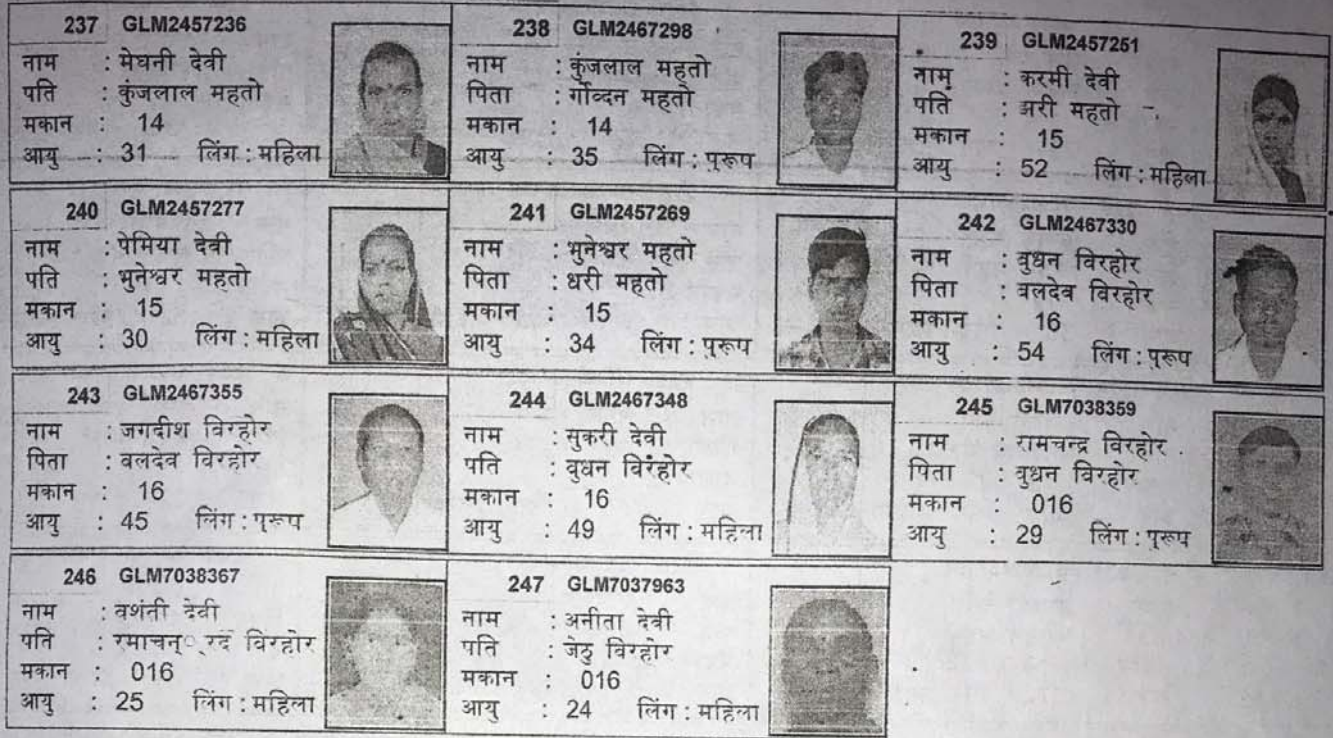 237 GLM2457236
नाम : मेघनी देवी
पति : कुंजलाल महतो
मकान : 14
आयु : 31 लिंग : महिला
238 GLM2467298
नाम : कुंजलाल महतो
पिता : गोंव्दन महतो
मकान : 14
आयु : 35 लिंग : पुरूप
239 GLM2457251
नाम : करमी देवी
पति : झरी महतो
मकान : 15
आयु : 52 लिंग : महिला
240 GLM2457277
नाम : पेमिया देवी
पति : भुनेश्वर महतो
मकान : 15
आयु : 30 लिंग : महिला
241 GLM2457269
नाम : भुनेश्वर महतो
पिता : धरी महतो
मकान : 15
आयु : 34 लिंग : पुरूप
242 GLM2467330
नाम : वुधन विरहोर
पिता : वलदेव विरहोर
मकान : 16
आयु : 54 लिंग : पुरूप
243 GLM2467355
नाम : जगदीश विरहोर
पिता : वलदेव विरहोर
मकान : 16
आयु : 45 लिंग : पुरूप
244 GLM2467348
नाम : सुकरी देवी
पति : वुधन विरहोर
मकान : 16
आयु : 49 लिंग : महिला
245 GLM7038359
नाम : रामचन्द्र विरहोर
पिता : वुधन विरहोर
मकान : 016
आयु : 29 लिंग : पुरूप
246 GLM7038367
नाम : वशंती देवी
पति : विरहोर
मकान : 016
आयु : 25 लिंग : महिला
247 GLM7037963
नाम : अनीता देवी
पति : जेठु विरहोर
मकान : 016
आयु : 24 लिंग : महिला